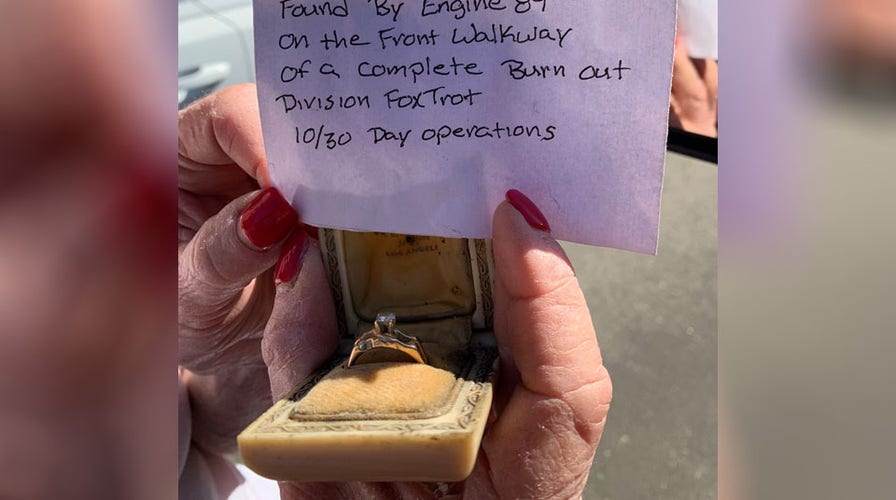 Found By Engine 89
on the Front Walkway
of a Complete Burn out
Division FoxTrot
10/30 Day operations
LOS ANGELES